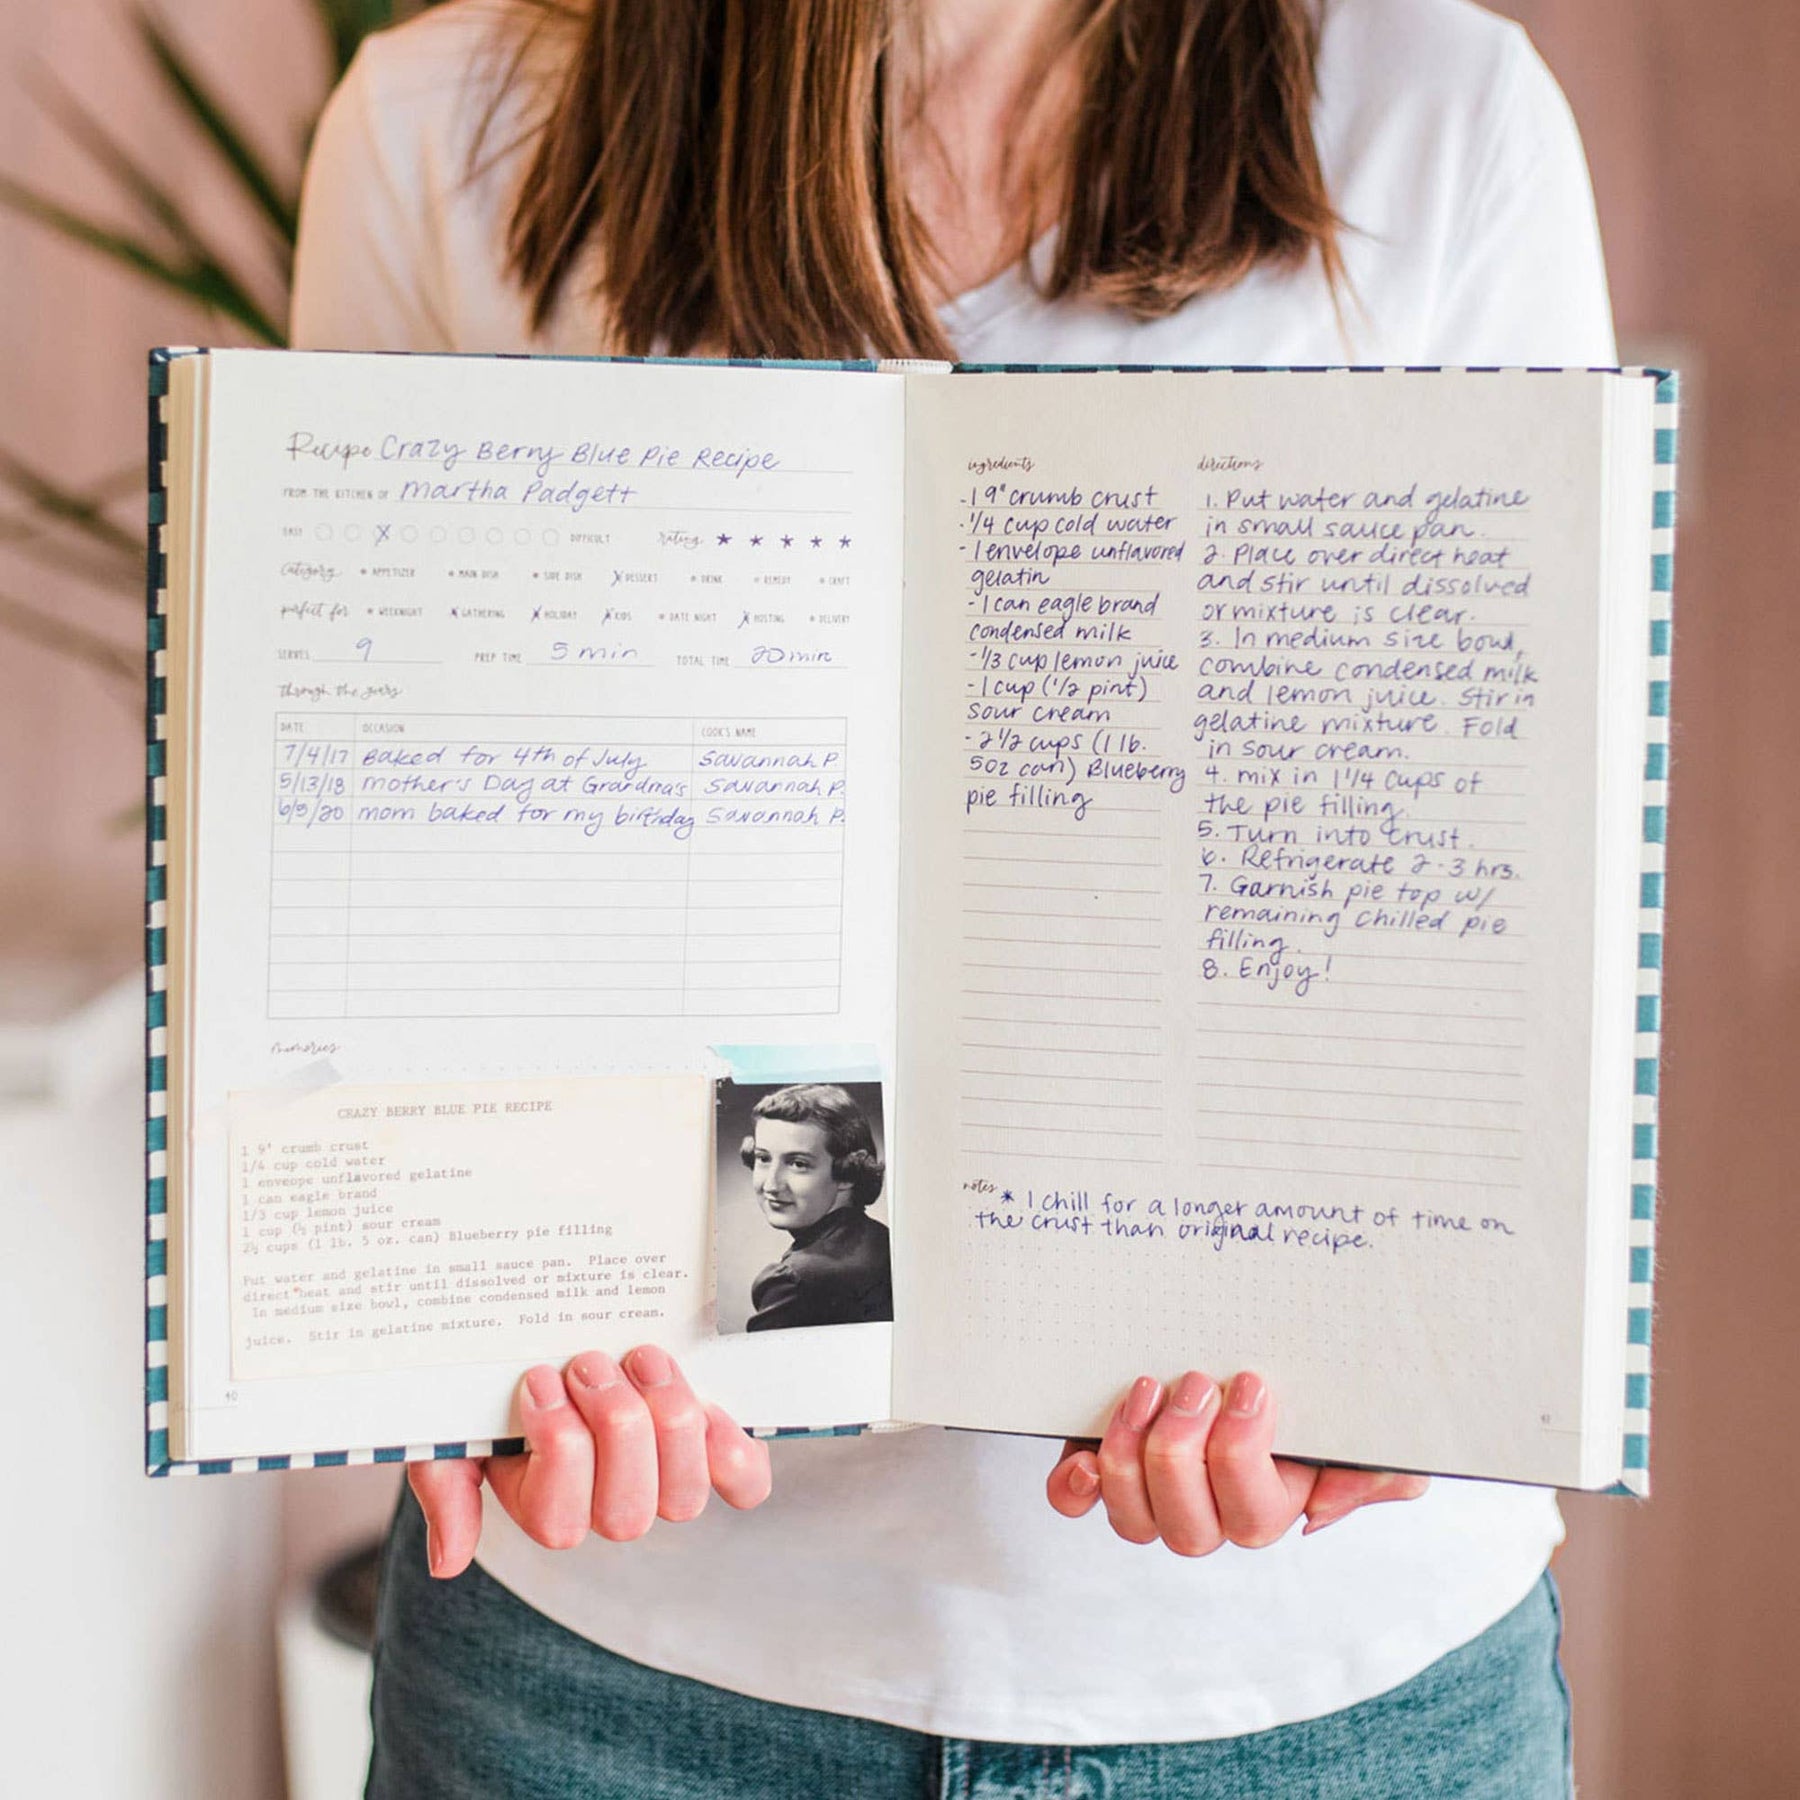 Recipe Crazy Berry Blue Pie Recipe
FROM THE KITCHEN OF Martha Padgett
EASY DIFFICULT rating
category APPETIZER MAIN DISH SIDE DISH DESSERT DRINK REMEDY CRAFT
perfect for WEEKNIGHT GATHERING HOLIDAY KIDS DATE NIGHT HOSTING DELIVERY
SERVES 9 PREP TIME 5 min TOTAL TIME 20 min
through the years
DATE OCCASION COOK'S NAME
7/4/17 Baked for 4th of July Savannah P.
5/13/18 Mother's Day at Grandma's Savannah P.
6/9/20 mom baked for my birthday Savannah P.
memories
CRAZY BERRY BLUE PIE RECIPE
1 9" crumb crust
1/4 cup cold water
1 enveope unflavored gelatine
1 can eagle brand
1/3 cup lemon juice
1 cup (½ pint) sour cream
2½ cups (1 lb. 5 oz. can) Blueberry pie filling
Put water and gelatine in small sauce pan. Place over
direct heat and stir until dissolved or mixture is clear.
In medium size bowl, combine condensed milk and lemon
juice. Stir in gelatine mixture. Fold in sour cream.
40
ingredients
- 1 9" crumb crust
- 1/4 cup cold water
- 1 envelope unflavored
gelatin
- 1 can eagle brand
condensed milk
- 1/3 cup lemon juice
- 1 cup (1/2 pint)
sour cream
- 2 1/2 cups (1 lb.
5oz can) Blueberry
pie filling
directions
1. Put water and gelatine
in small sauce pan.
2. Place over direct heat
and stir until dissolved
or mixture is clear.
3. In medium size bowl,
combine condensed milk
and lemon juice. Stir in
gelatine mixture. Fold
in sour cream.
4. mix in 1 1/4 cups of
the pie filling.
5. Turn into crust.
6. Refrigerate 2-3 hrs.
7. Garnish pie top w/
remaining chilled pie
filling.
8. Enjoy!
notes
* I chill for a longer amount of time on
the crust than original recipe.